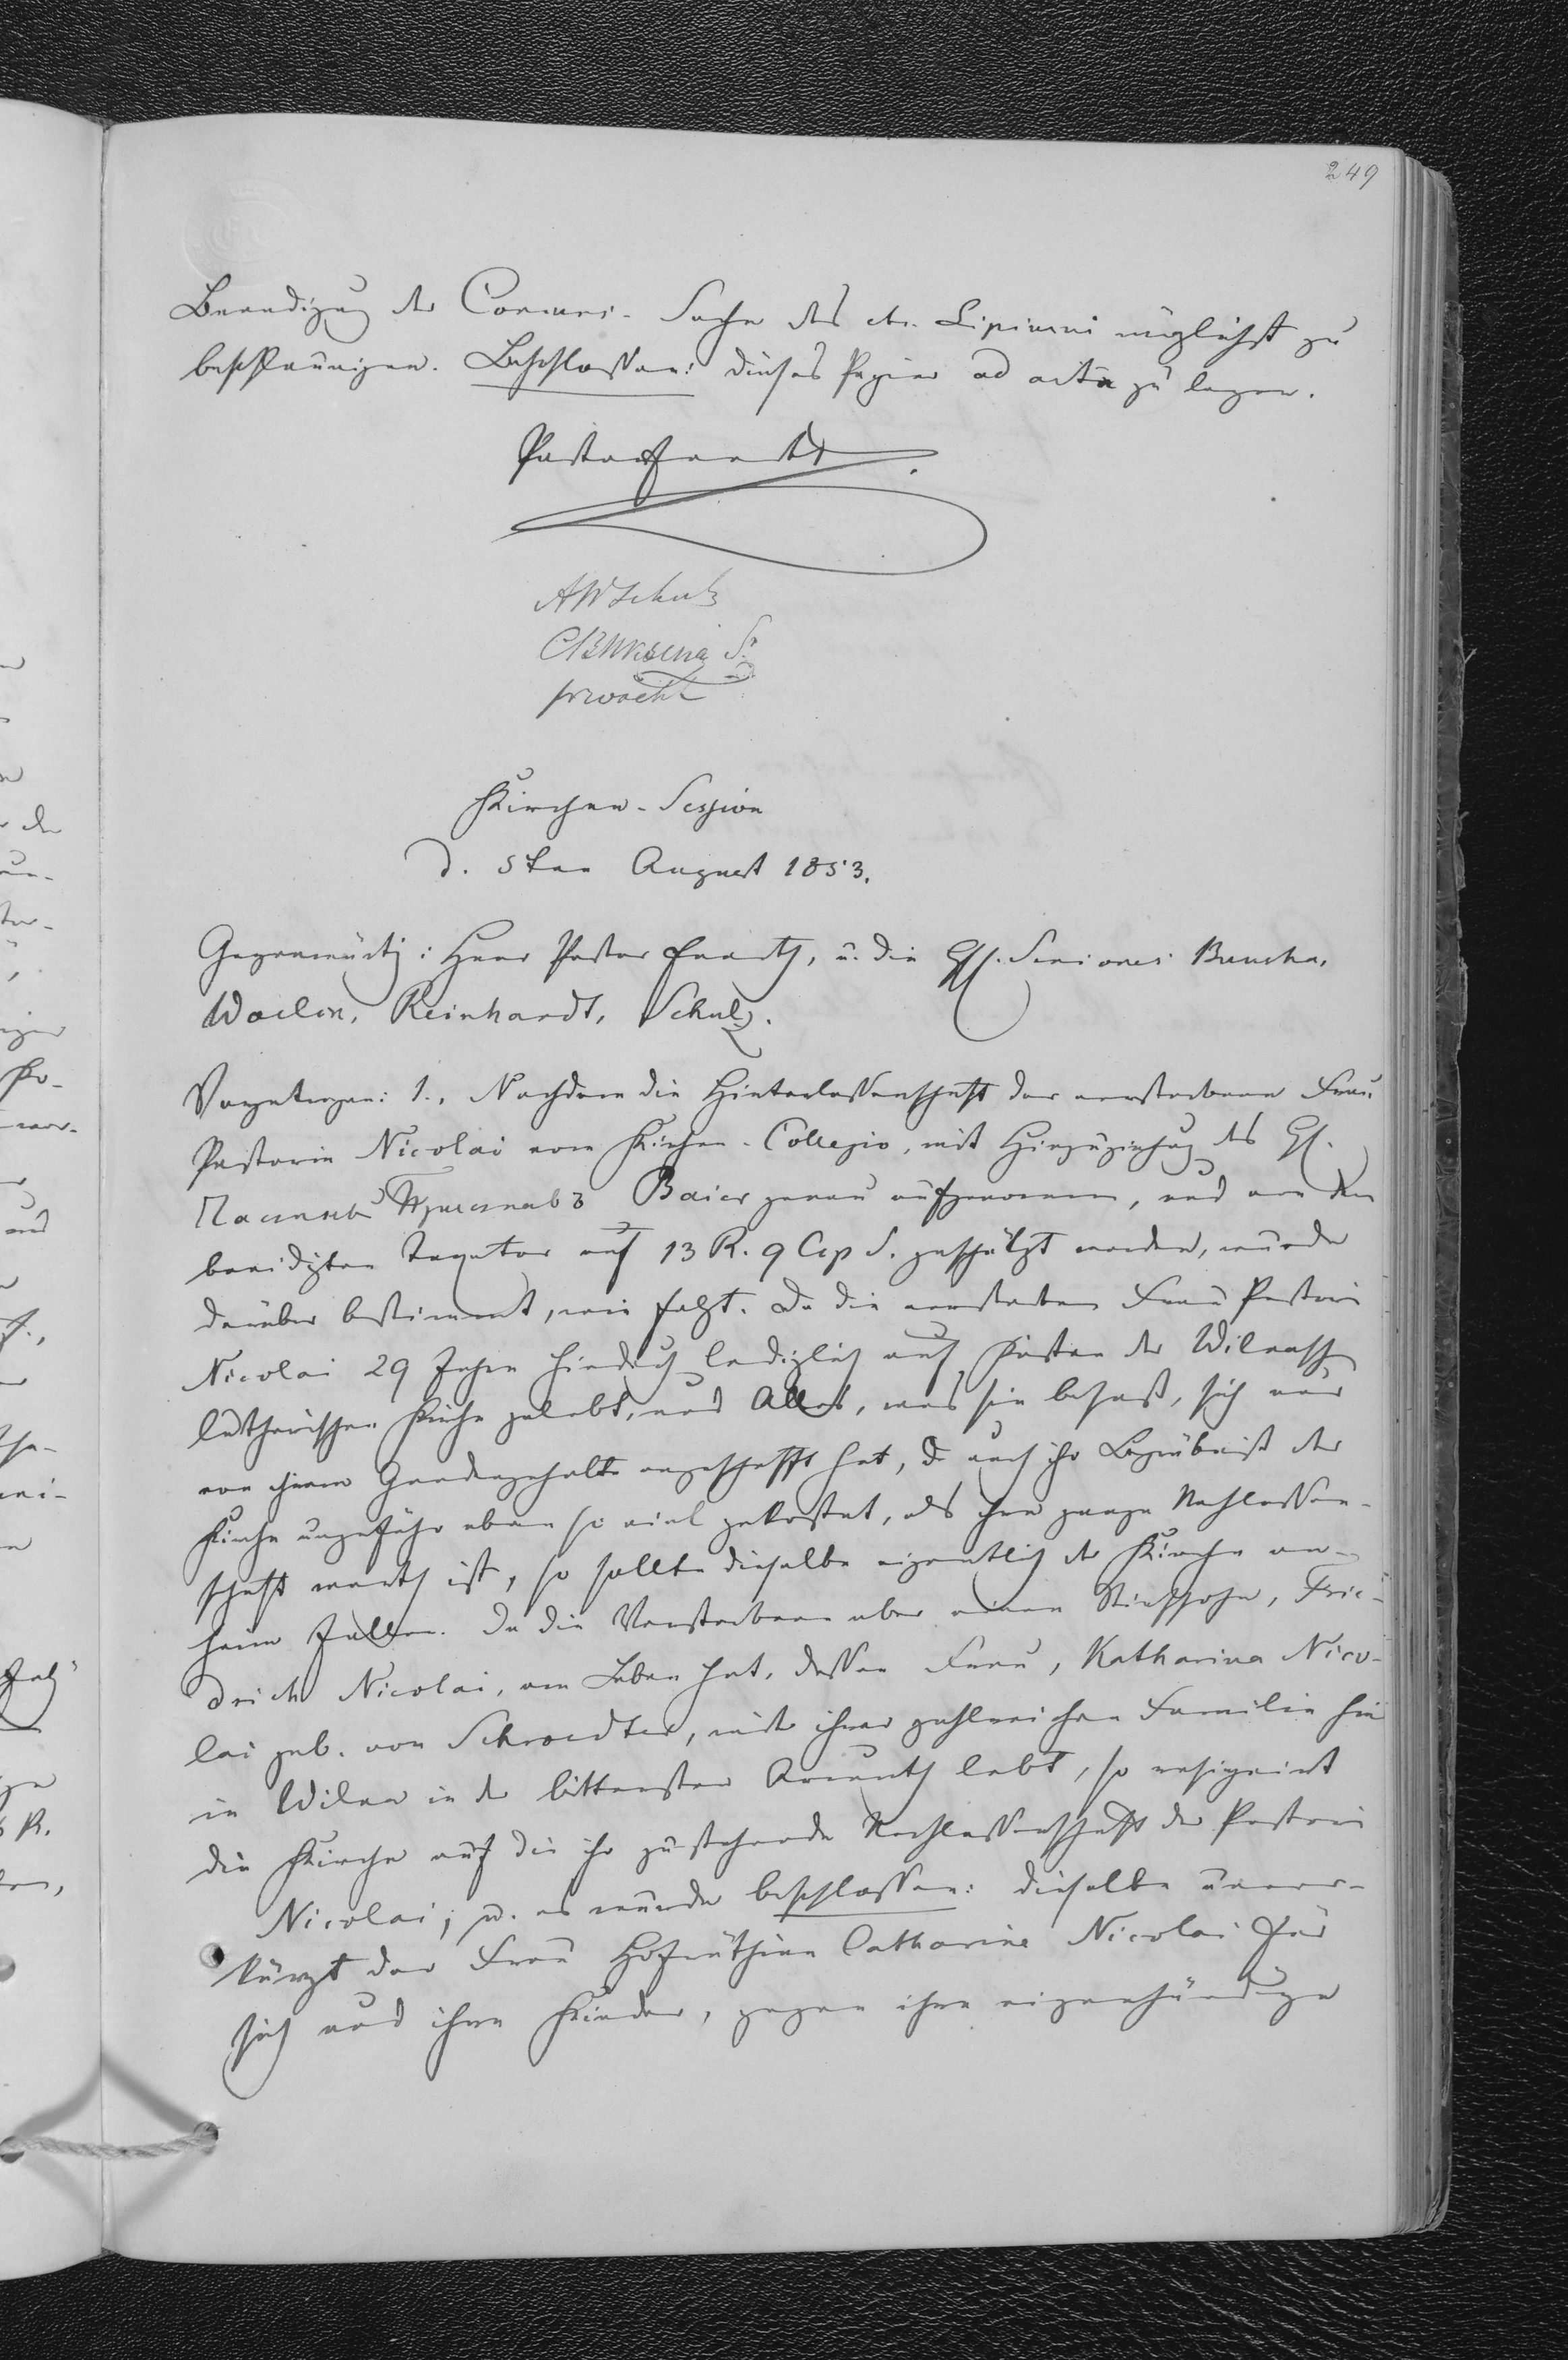 249
Beendigung der Concurs-Sache des etc. Lipinski möglichst zu
beschleunigen. Beschlossen: dieses Papier ad acta zu legen.
Pastor
AWSchulz
Kirchen-Session
d. 5ten August 1853.
Gegenwärtig: Herr Pastor Everth, u. die HH. Seniores
Woelck, Reinhardt, Schulz.
Vorgetragen: 1., Nachdem die Hinterlassenschaft der verstorbenen Frau
Pastorin Nicolai vom Kirchen-Collegio, mit Hinzuziehung des H.
Частный Приставъ Baier genau aufgenommen, und von dem
beeidigten Taxator auf 13 R. 9 Cop S. geschätzt worden, wurde
darüber bestimmt, wie folgt. Da die verstorbene Frau Pastorin
Nicolai 29 Jahre hindurch lediglich auf Kosten der Wilnaschen
lutherischen Kirche gelebt, und Alles, was sie besaß, sich nur
von ihrem Gnadengehalte angeschafft hat, da auch ihr Begräbniß der
Kirche ungefähr eben so viel gekostet, als ihre ganze Nachlassen-
schaft werth ist, so sollte dieselbe eigentlich der Kirche an-
heim fallen. Da die Verstorbene aber einen Stiefsohn, Frie-
drich Nicolai, am Leben hat, dessen Frau, Katharina Nico-
lai geb. von Schroedter, mit ihrer zahlreichen Familie hie
in Wilna in der bittersten Armuth lebt, so resignirt
die Kirche auf die ihr zustehende Nachlassenschaft der Pastorin
Nicolai; u. es wurde beschlossen: dieselbe unver-
kürzt der Frau Hofräthinn Catharine Nicolai für
sich und ihre Kinder, gegen ihre eigenhändige